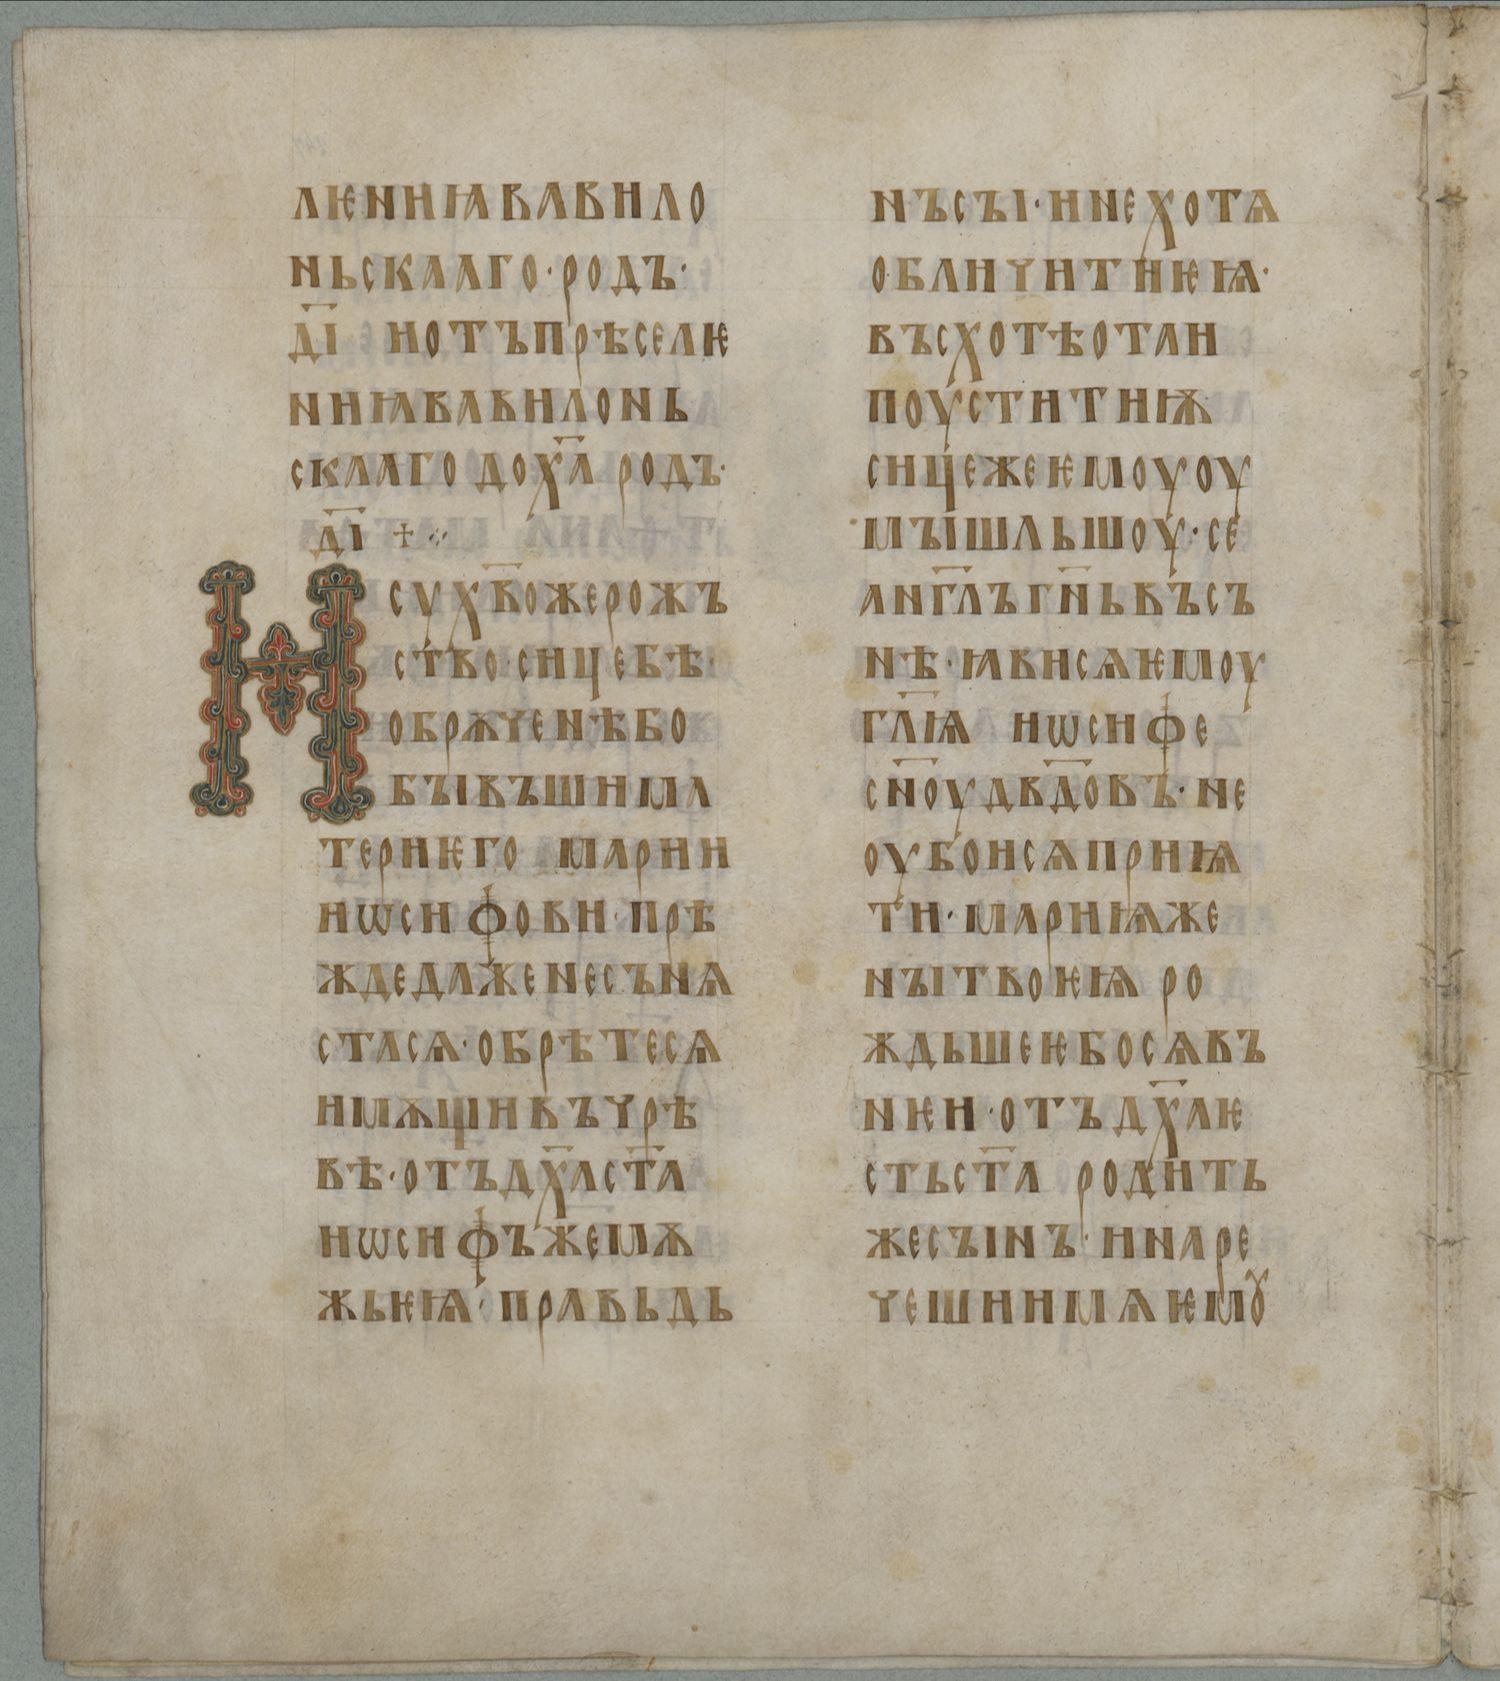 лѥниꙗвавило
ньскааго·родъ·
д҃і иотъпрѣселѥ
ниꙗвавилонь
скаагодох҃а родъ·
д҃і +
Исух҃вожерожъ
ство·сицебѣ·
обрѫченѣбо
бꙑвъшима
териѥго марии
иѡсифови·прѣ
ждедаженесънѧ
стасѧ·обрѣтесѧ
имѫщивъчрѣ
вѣ·отъдх҃аст҃а
иѡсифъжемѫ
жьѥѩ·правьдь
нъсꙑ·инехотѧ
обличитиѥѩ·
въсхотѣотаи
поуститииѭ
сицежеѥмоуоу
мꙑшльшоу·се
анг҃лъгн҃ьвъсъ
нѣ·ꙗвисѧѥмоу
гл҃ѩ иѡсифе
сн҃оудвд҃овъ·не
оубоисѧприѩ
ти·мариѭже
нꙑтвоѥѩ ро
ждьшеѥбосѧвъ
нѥи·отъдх҃аѥ
стьст҃а родить
жесꙑнъ·инаре
чешиимѧѥмꙋ